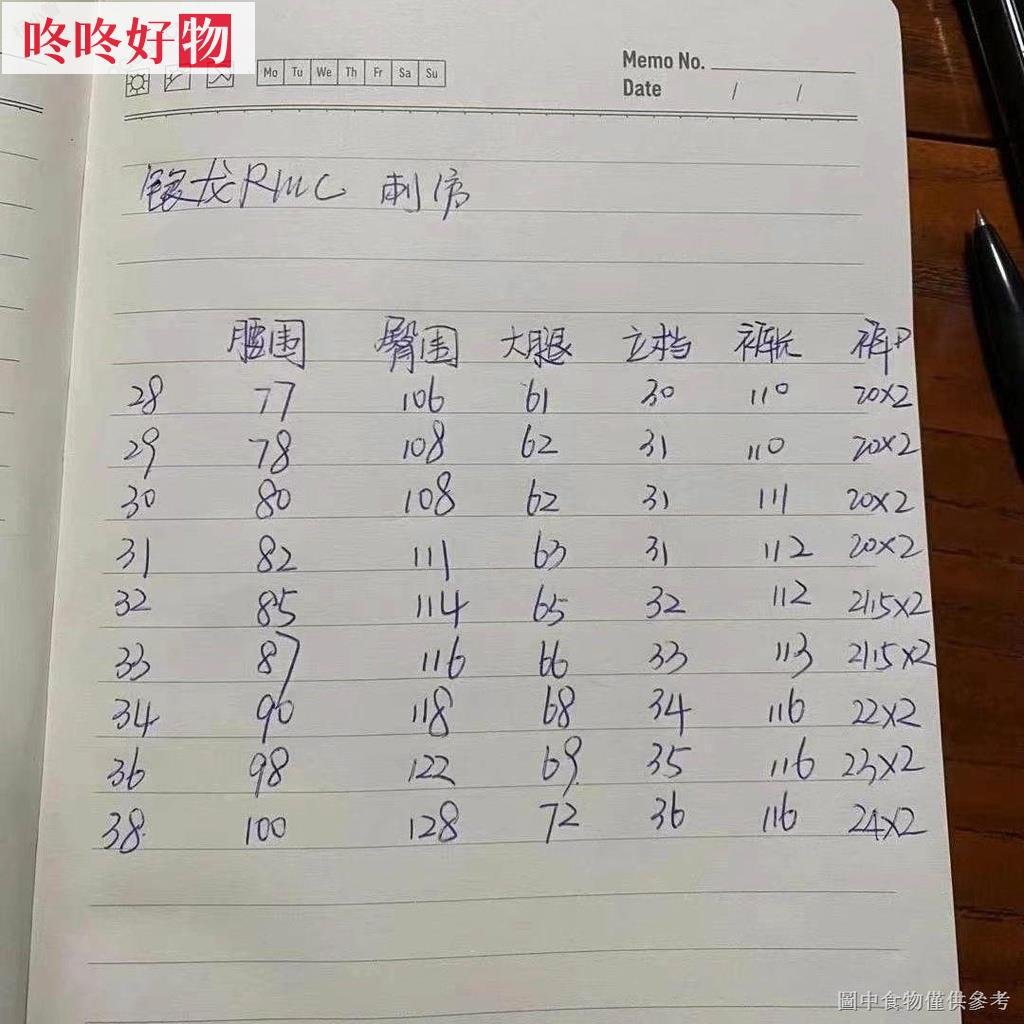 咚咚好物
Mo Tu We Th Fr Sa Su
Memo No.
Date / /
银龙RMC 刺绣
腰围 臀围 大腿 立档 裤长 裤口
28 77 106 61 30 110 20×2
29 78 108 62 31 110 20×2
30 80 108 62 31 111 20×2
31 82 111 63 31 112 20×2
32 85 114 65 32 112 21.5×2
33 87 116 66 33 113 21.5×2
34 90 118 68 34 116 22×2
36 98 122 69 35 116 23×2
38 100 128 72 36 116 24×2
圖中食物僅供參考